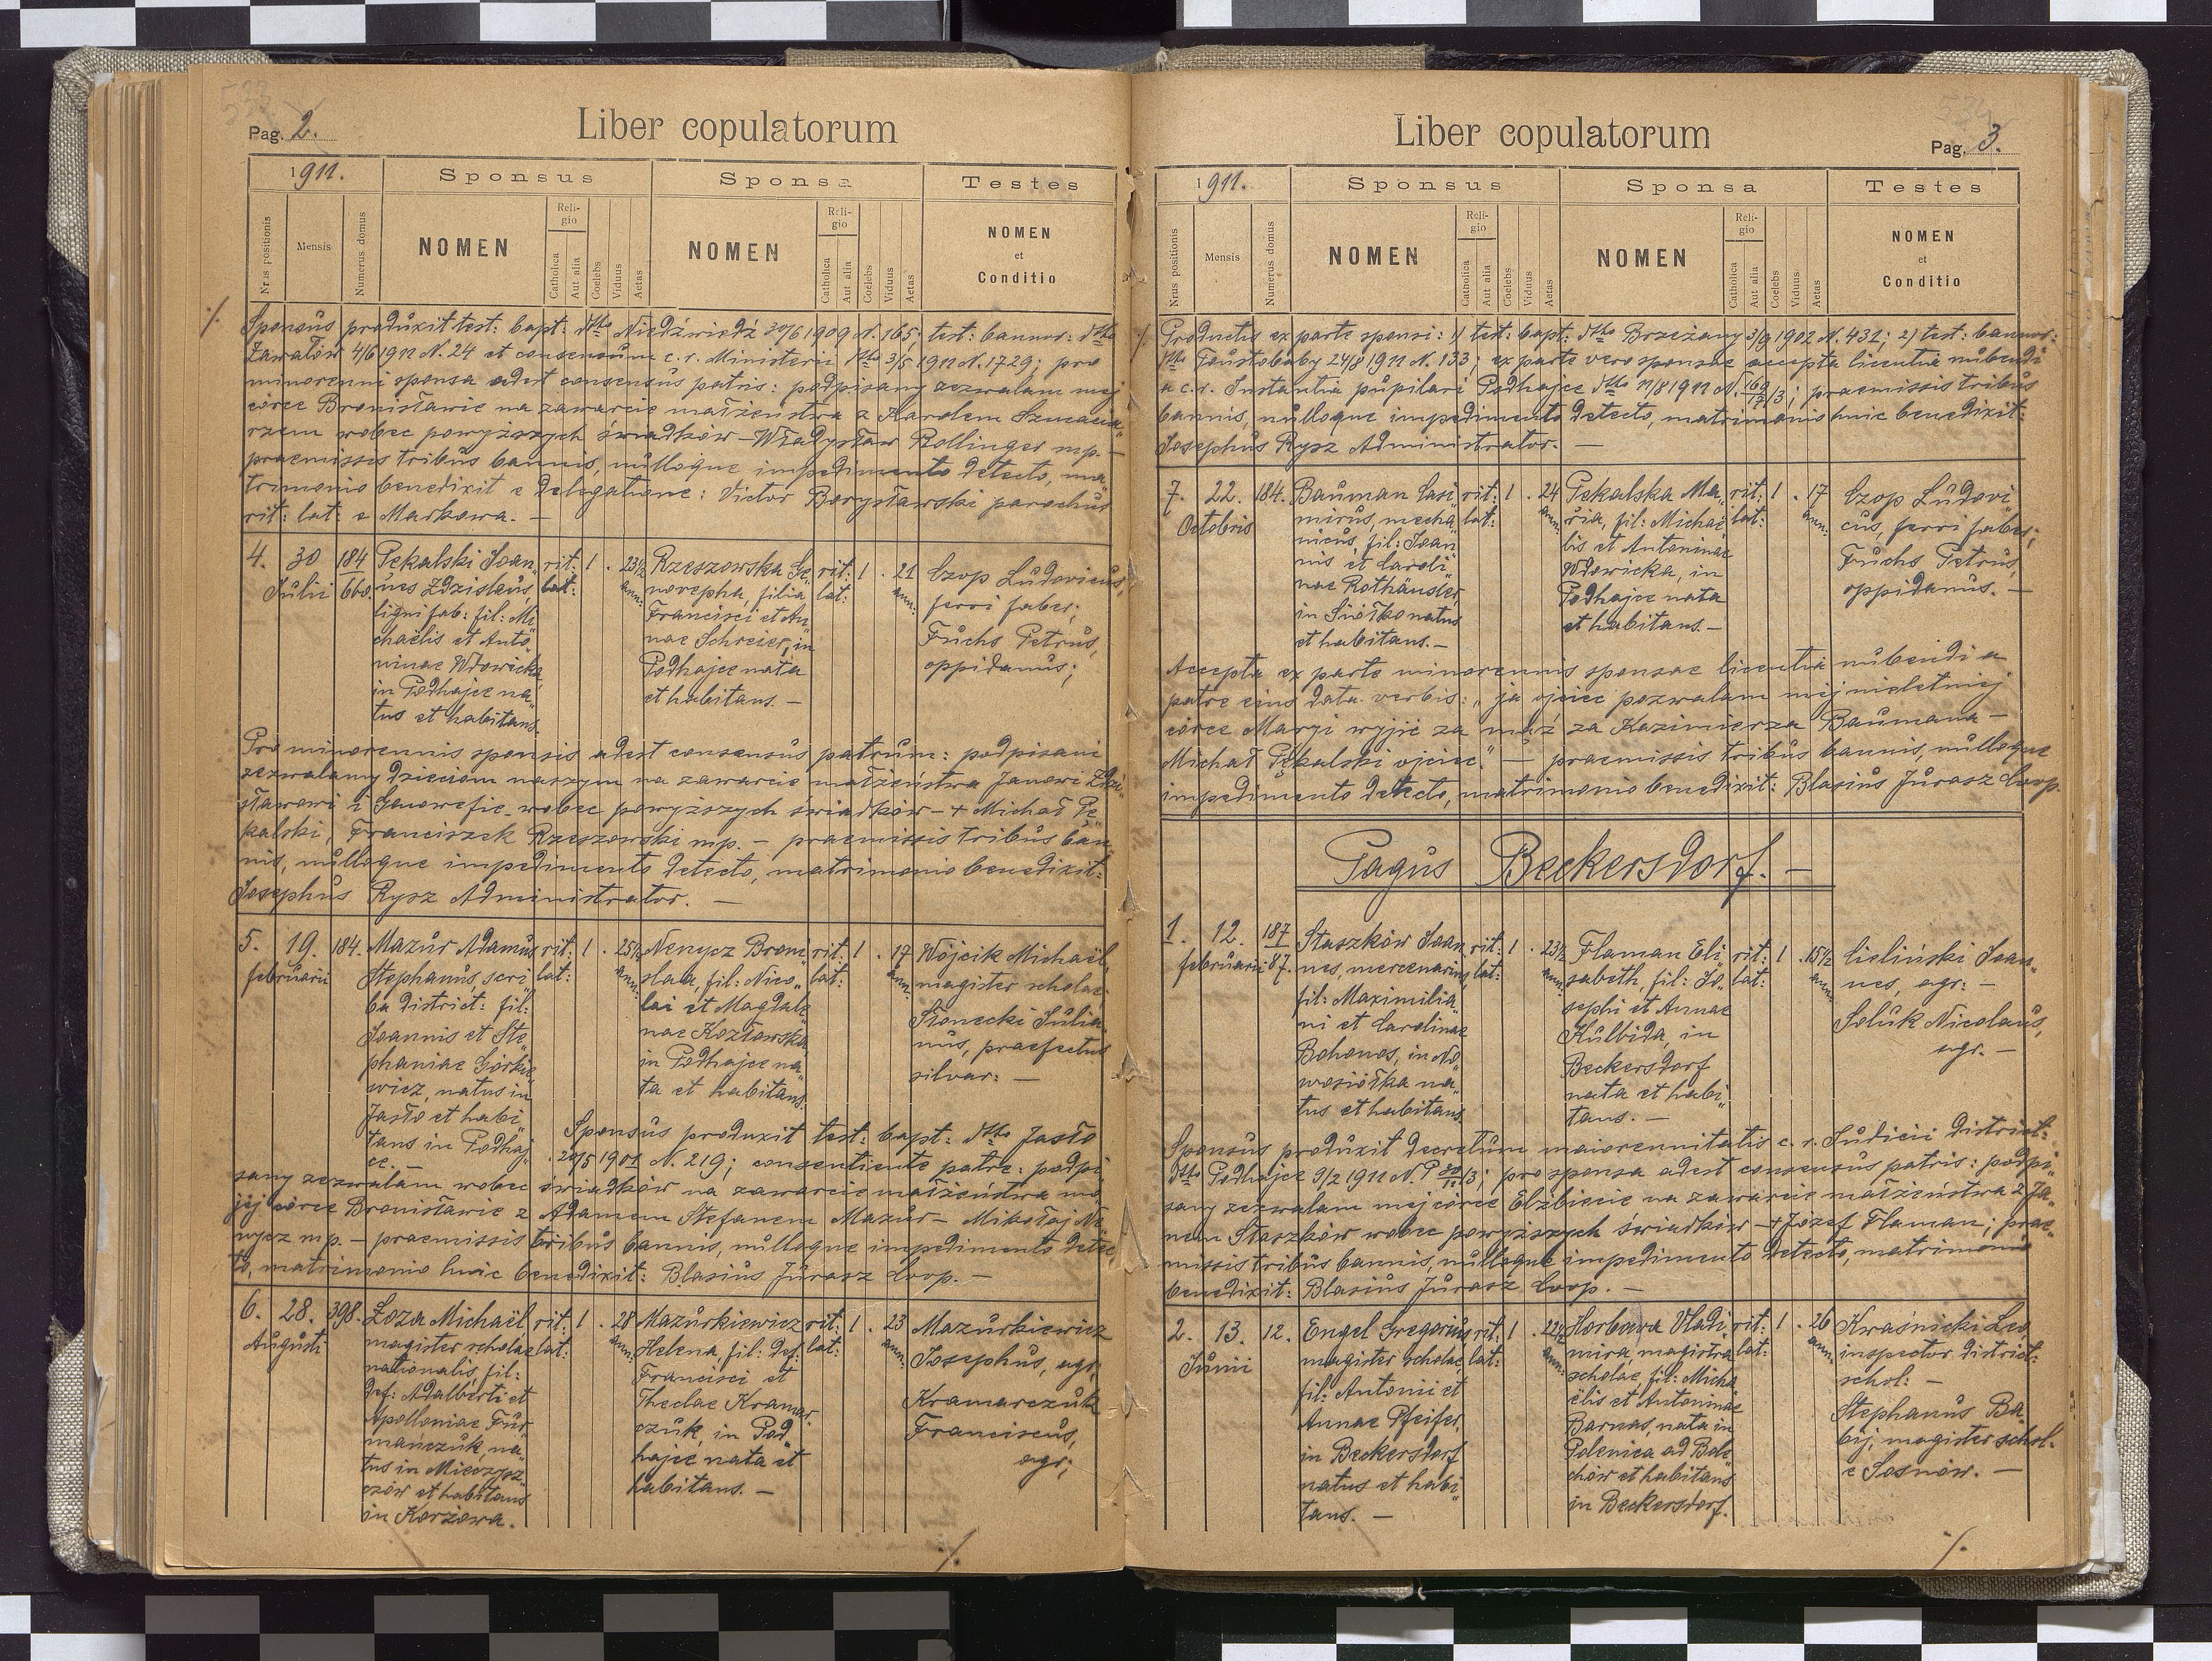 Pag. 2.
Liber copulatorum
1911.
Sponsus
Sponsa
Testes
Nrus positionis
Mensis
Numerus domus
NOMEN
Religio
Catholica
Aut alia
Coelebs
Viduus
Aetas
NOMEN
Religio
Catholica
Aut alia
Coelebs
Viduus
Aetas
NOMEN
et
Conditio
Sponsus produxit test: bapt: dtto Niedźwiedź 30/6 1909 N. 165; test: bannor: dtto
Zawałów 4/6 1911 N. 24 et consensum c. r. Ministerii dtto 3/5 1911 N. 1729; pro
minorenni sponsa adest consensus patris: podpisany zezwalam mej
córce Bronisławie na zawarcie małżeństwa z Karolem
rzem wobec powyższych świadków – Władysław Rollinger mp. –
praemissis tribus bannis, nulloque impedimento detecto, ma„
trimonio benedixit e delegatione: Victor Borysławski parochus
rit: lat: e Markowa. –
4.
30
Julii
184
660.
Pękalski Joan„
nes Zdzislaus,
ligni fab: fil: Mi„
chaëlis et Anto„
ninae Wdowicka,
in Podhajce na„
tus et habitans.
rit:
lat:
1
.
23 1/2
ann:
Rzeszowska Ge„
novepha, filia
Francisci et An„
nae Schreier, in
Podhajce nata
et habitans. –
rit:
lat:
1
.
21
ann:
Czop Ludovicus,
ferri faber;
Fuchs Petrus,
oppidanus;
Pro minorennis sponsis adest consensus patrum: podpisani
zezwalamy dzieciom naszym na zawarcie małżeństwa Janowi Zdzi„
sławowi i Genowefie wobec powyższych świadków – + Michał Pę„
kalski, Franciszek Rzeszowski mp. – praemissis tribus ban„
nis, nulloque impedimento detecto, matrimonio benedixit:
Josephus Rysz Administrator. –
5.
19.
februarii
184.
Mazur Adamus
Stephanus, scri„
ba district: fil:
Joannis et Ste„
phaniae Górkie„
wicz, natus in
Jasło et habi„
tans in Podhaj„
ce. –
rit:
lat:
1
.
25 1/2
ann:
Nenycz Broni„
slaa, fil: Nico„
lai et Magdale„
nae Kozłowska,
in Podhajce na„
ta et habitans.
rit:
lat:
1
.
17
ann:
Wójcik Michaël,
magister scholae
Słonecki Julia„
nus, praefectus
silvar: –
Sponsus produxit test: bapt: dtto Jasło
20/5 1901 N. 219; consentiente patre: podpi„
sany zezwalam wobec świadków na zawarcie małżeństwa mo„
jej córce Bronisławie z Adamem Stefanem Mazur – Mikołaj Ne„
nycz mp. – praemissis tribus bannis, nulloque impedimento detec„
to, matrimonio huic benedixit: Blasius Jurasz Coop. –
6.
28.
Augusti
398.
Łoza Michaël,
magister scholae
nationalis, fil:
def: Adalberti et
Apolloniae Fur„
mańczuk, na„
tus in
et habitans
in Korżowa.
rit:
lat:
1
.
28
ann:
Mazurkiewicz
Helena, fil: def:
Francisci et
Theclae Kramar„
czuk, in Pod„
hajce nata et
habitans. –
rit:
lat:
1
.
23
ann:
Mazurkiewicz
Josephus, agr;
Kramarczuk
Franciscus,
agr;
Liber copulatorum
Pag. 3.
1911.
Sponsus
Sponsa
Testes
Nrus positionis
Mensis
Numerus domus
NOMEN
Religio
Catholica
Aut alia
Coelebs
Viduus
Aetas
NOMEN
Religio
Catholica
Aut alia
Coelebs
Viduus
Aetas
NOMEN
et
Conditio
Productis ex parte sponsi: 1) test: bapt: dtto Brzeżany 3/9 1902 N. 431; 2) test: bannor:
dtto Toustobaby 24/8 1911 N. 133; ex parte vero sponsae accepta licentia nubendi
a c. r. Instantia pupilari Podhajce dtto 11/8 1911 N. praemissis tribus
bannis, nulloque impedimento detecto, matrimonio huic benedixit:
Josephus Rysz Administrator. –
7.
22.
Octobris
184.
Bauman Casi„
mirus, mecha„
nicus, fil: Joan„
nis et Caroli„
nae Rothäusler,
in Siółko natus
et habitans. –
rit:
lat:
1
.
24
ann:
Pękalska Ma„
ria, fil: Michaë„
lis et Antoninae
Wdowicka, in
Podhajce nata
et habitans. –
rit:
lat:
1
.
17
ann:
Czop Ludovi„
cus, ferri faber;
Fuchs Petrus,
oppidanus. –
Accepta ex parte minorennis sponsae licentia nubendi a
patre eius data verbis: „ja ojciec pozwalam mej nieletniej
córce Maryi wyjść za mąż za Kazimierza Baumana –
Michał Pękalski ojciec." – praemissis tribus bannis, nulloque
impedimento detecto, matrimonio benedixit: Blasius Jurasz Coop.
Pagus Beckersdorf. –
1.
12.
februarii
187
87.
Staszków Joan„
nes, mercenarius,
fil: Maximilia„
ni et Carolinae
Bohonos, in No„
wosiółka na„
tus et habitans.
rit:
lat:
1
.
23 1/2
ann:
Flaman Eli„
sabeth, fil: Jo„
sephi et Annae
Kulbida, in
Beckersdorf
nata et habi„
tans. –
rit:
lat:
1
.
15 1/2
ann:
Cieliński Joan„
nes, agr: –
Soluk Nicolaus,
agr. –
Sponsus produxit decretum maiorennitatis c. r. Judicii district:
dtto Podhajce 9/2 1911 N. P pro sponsa adest consensus patris: podpi„
sany zezwalam mej córce Elżbiecie na zawarcie małżeństwa z Ja„
nem Staszków wobec powyższych świadków – + Józef Flaman; prae„
missis tribus bannis, nulloque impedimento detecto, matrimonio
benedixit: Blasius Jurasz Coop. –
2.
13.
Junii
12.
Engel Gregorius,
magister scholae
fil: Antonii et
Annae Pfeifer,
in Beckersdorf
natus et habi„
tans. –
rit:
lat:
1
.
22 1/2
ann:
Horbowa Vladi„
mira, magistra
scholae, fil: Micha„
ëlis et Antoninae
Barnas, nata in
Polenica ad Bole„
chów et habitans
in Beckersdorf.
rit:
lat:
1
.
26
ann:
Kwaśnicki Leo,
inspector district:
schol: –
Stephanus Ba„
bij, magister schol.
e Sosnów. –